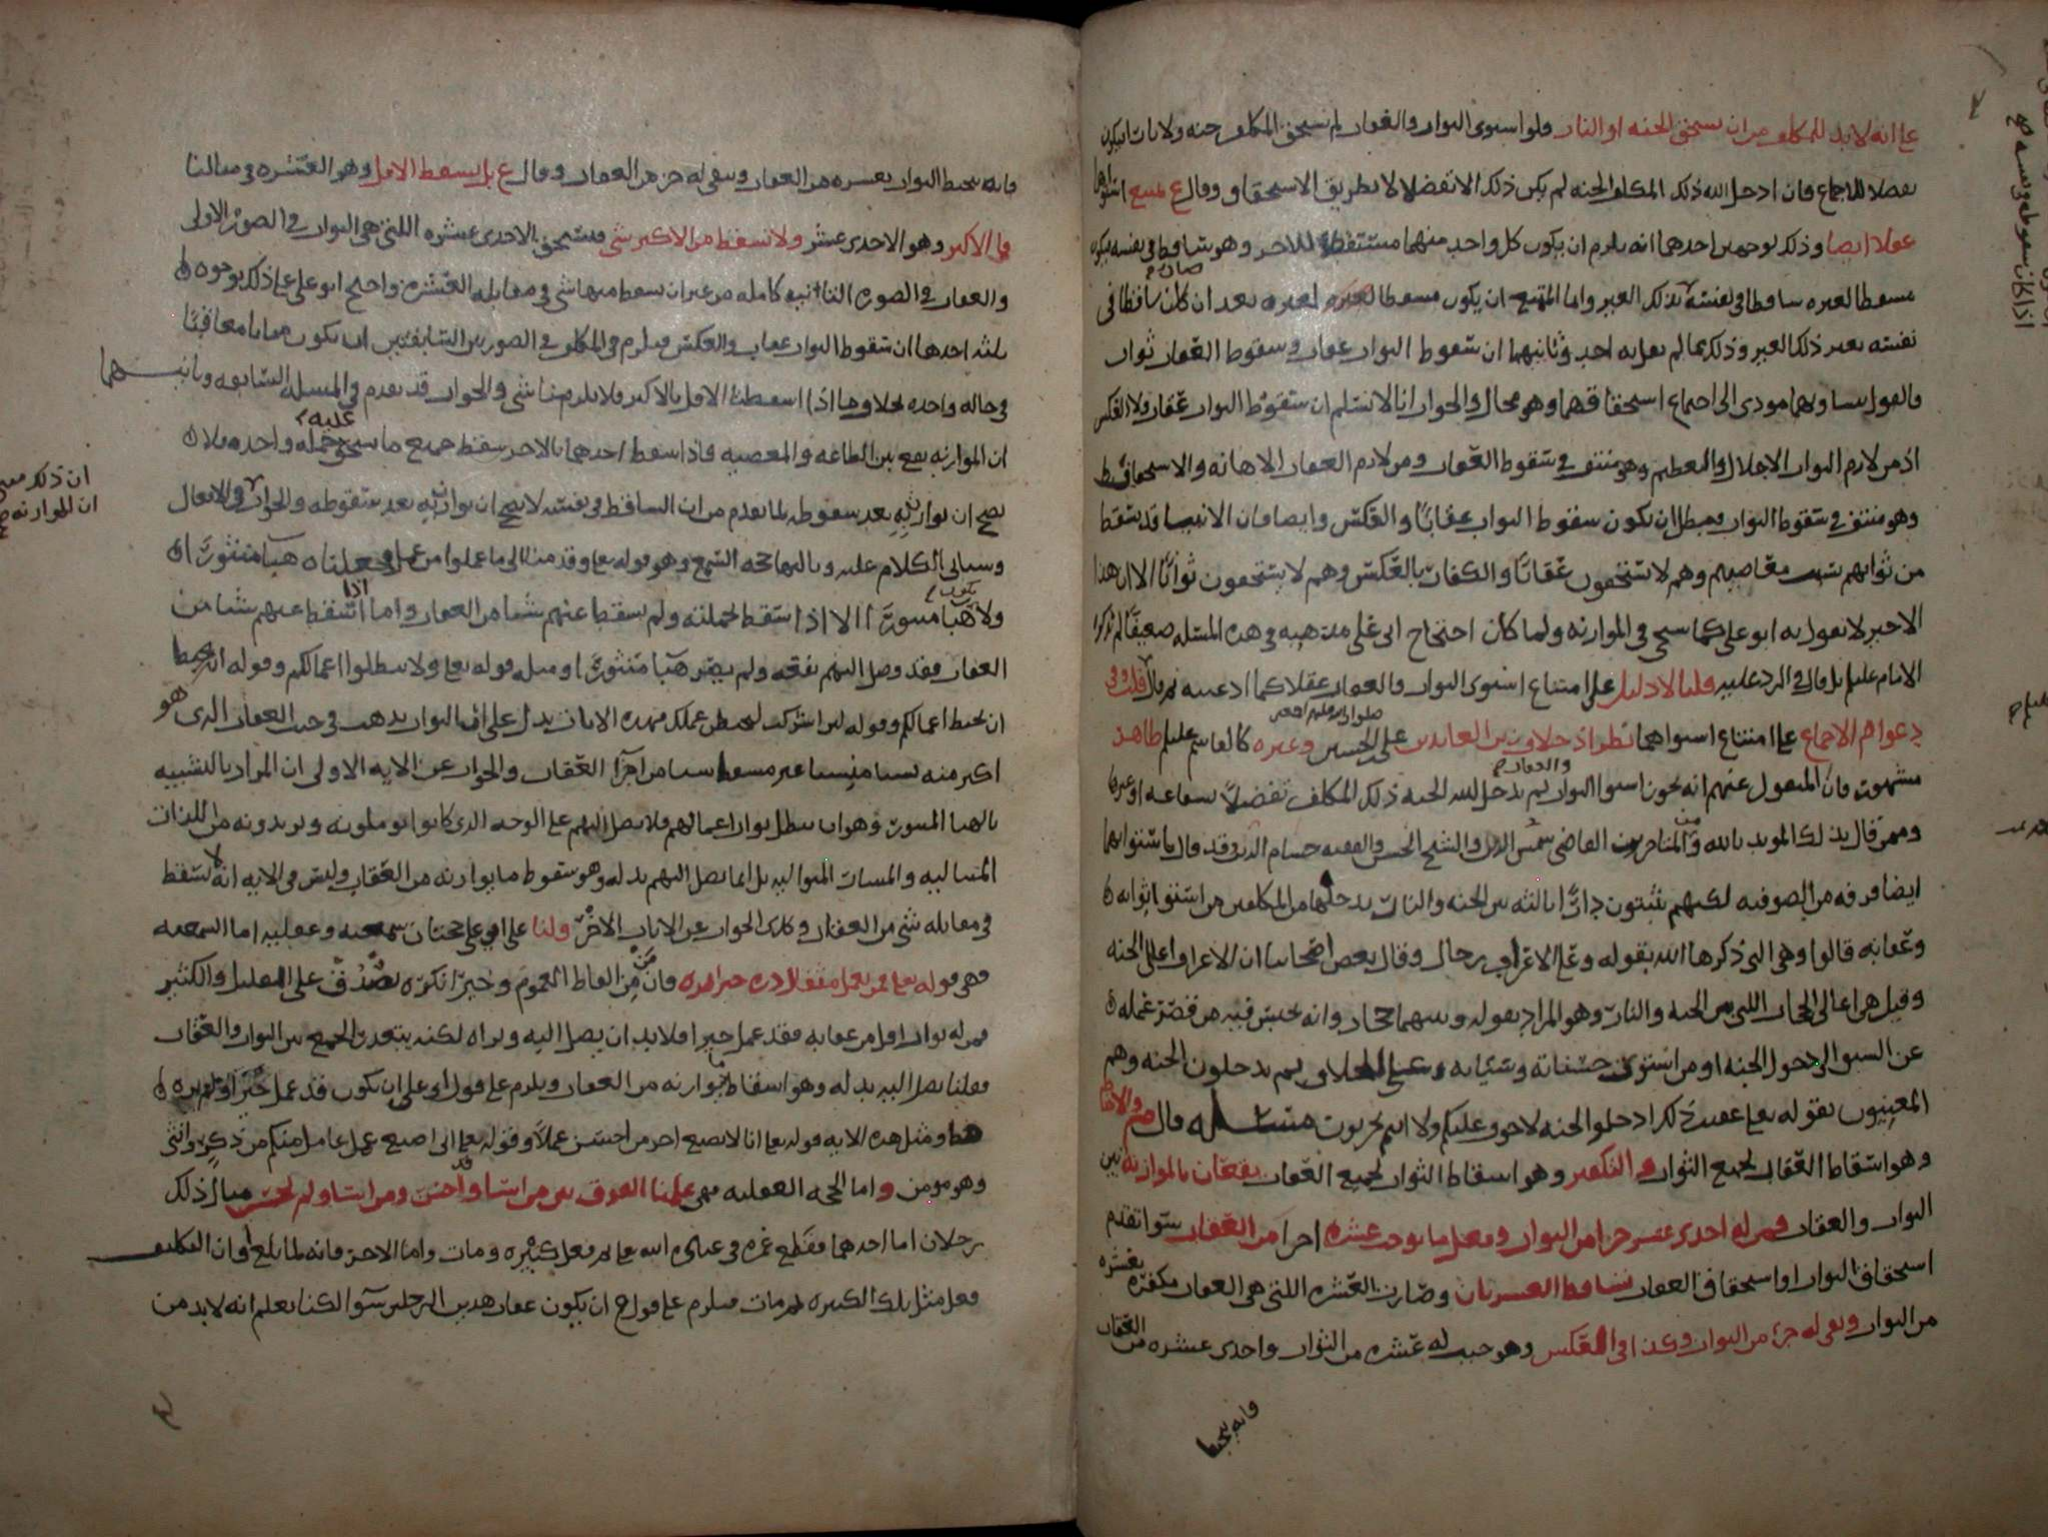 على انه لا بد للمكلف من ان يستحق الجنه او النار فلو استوى الثواب والعقاب لم يستحق المكلف جنه ولا نارا فيكون
تفضلا للاجماع فان ادخل الله ذلك المكلف الجنه لم يكن ذلك الا تفضلا لا بطريق الاستحقاق وقال ع يمتنع استواهما
عقلا ايضا وذلك لوجهين احدهما انه يلزم ان يكون كل واحد منهما مسقطا للاخر وهو ساقط في نفسه فيكون
مسقطا لغيره ساقطا في نفسه بذلك الغير واما الممتنع ان يكون مسقطا لغيره بعد ان كان ساقطا في
نفسه بغير ذلك الغير وذلك مما لم يقل به احد وثانيهما ان سقوط الثواب عقاب وسقوط العقاب ثواب
فالقول بتساويهما مودى الى اجتماع استحقاقهما وهو محال والجواب انا لا نسلم ان سقوط الثواب عقاب ولا العكس
اذ من لازم الثواب الاجلال والتعظيم وهو منتف في سقوط العقاب ومن لازم العقاب الاهانه والاستخفاف
وهو منتف في سقوط الثواب فبطل ان يكون سقوط الثواب عقابا والعكس وايضا فان الانبيا قد يسقط
من ثوابهم بسبب معاصيهم وهم لا يستحقون عقابا والكفار بالعكس وهم لا يستحقون ثوابا الا ان هذا
الاخير لا يقول به ابو على كما سيجي في الموازنه ولما كان احتجاج ابى على مذهبه في هذه المسئله ضعيفا لم يذكره
الامام عليلم بل قال في الرد عليه قلنا لا دليل على امتناع استوى الثواب والعقاب عقلا كما ادعيته قلت وفي
دعواهم الاجماع على امتناع استواهما نظر اذ خلاف زين العابدين على بن الحسين وغيره كالقاسم عليلم ظاهر
صلوات الله عليهم اجمعين
مشهور فان المنقول عنهم انه يجوز استوا الثواب والعقاب ثم يدخل الله الجنه ذلك المكلف تفضلا بشفاعه او غيرها
وممن قال بذلك المويد بالله ومن المتاخرين القاضى شمس الدين والشيخ الحسن والفقيه حسام الدين وقد قال باستوايهما
ايضا فرقه من الصوفيه لكنهم يثبتون دارا ثالثه بين الجنه والنار يدخلها من المكلفين من استوا ثوابه
وعقابه قالوا وهى التى ذكرها الله بقوله وعلى الاعراف رجال وقال بعض اصحابنا ان الاعراف اعلى الجنه
وقيل هى اعالى الحجاب الذى بين الجنه والنار وهو المراد بقوله وبينهما حجاب وانه يحبس فيه من قصر عمله
عن السبق الى دخول الجنه او من استوى حسناته وسيئاته على الخلاف ثم يدخلون الجنه وهم
المعنيون بقوله تعالى عقيب ذلك ادخلوا الجنه لا خوف عليكم ولا انتم تحزنون مسئله قال والاحباط
وهو اسقاط العقاب لجميع الثواب والتكفير وهو اسقاط الثواب لجميع العقاب يقعان بالموازنه بين
الثواب والعقاب فمن له احدى عشر جزا من الثواب وفعل ما يوجب عشره اجزا من العقاب سوا تقدم
استحقاق الثواب او استحقاق العقاب تساقط العشرتان وصارت العشره التى هى العقاب مكفره بعشره
من الثواب وبقى له جزء من الثواب وكذا في العكس وهو حيث له عشره من الثواب واحدى عشره من العقاب
فانه يحبط
اذا كان سقوطه وسه صح
فانه يحبط الثواب بعشره من العقاب وبقى له جزء من العقاب وقال ع بل يسقط الاقل وهو العشره في مثالنا
في الاكثر وهو الاحدى عشر ولا يسقط من الاكثر شى فيستحق الاحدى عشره التى هى الثواب في الصوره الاولى
والعقاب في الصوره الثانيه كامله من غير ان يسقط منها شى في مقابله العشره واحتج ابو على على ذلك بوجوه
ثلثه احدها ان سقوط الثواب عقاب والعكس فيلزم في المكلف في الصورتين السابقتين ان يكون مثابا معاقبا
في حاله واحده بخلاف ما اذا اسقطنا الاقل بالاكثر فلا يلزمنا شى والجواب قد تقدم في المسئله السابقه وثانيهما
ان الموازنه تقع بين الطاعه والمعصيه فاذا سقط احدهما بالاخر سقط جميع ما يستحق عليه جمله واحده فلا
يصح ان يوازن به بعد سقوطه لما تقدم من ان الساقط في نفسه لا يصح ان يوازن به بعد سقوطه والجواب في الافعال
ان ذلك مبنى
ان الموازنه
وسياتى الكلام عليه وثالثها حجه السمع وهو قوله تعالى وقدمنا الى ما عملوا من عمل فجعلناه هبا منثورا
ولا يكون هبا منثورا الا اذا سقط بجملته ولم يسقط عنهم شيا من العقاب واما اذا اسقط عنهم شيا من
العقاب فقد وصل اليهم نفعه ولم يصر هبا منثورا ومثله قوله تعالى ولا تبطلوا اعمالكم وقوله
ان تحبط اعمالكم وقوله لئن اشركت ليحبطن عملك فهذه الايات تدل على ان الثواب يذهب في جنب العقاب الذى هو
اكثر منه من غير مسقط شيا من اجزا العقاب والجواب عن الايه الاولى ان المراد بالتشبيه
بالهبا المنثور وهو ان يبطل ثواب اعمالهم فلا يصل اليهم على الوجه الذى كانوا يوملونه ويريدونه من اللذات
المتتاليه والمسرات المتواليه بل انما يصل اليهم بدله وهو سقوط ما يوازنه من العقاب وليس في الايه انه لا يسقط
في مقابله شى من العقاب وكذلك الجواب عن الايات الاخر ولنا على ابى على حجتان سمعيه وعقليه اما السمعيه
فهى قوله تعالى فمن يعمل مثقال ذره خيرا يره فان من من الفاظ العموم وخيرا نكره تصدق على القليل والكثير
فمن له ثواب اقل من عقابه فقد عمل خيرا فلا بد ان يصل اليه ويراه لكنه يتعذر الجمع بين الثواب والعقاب
فقلنا يصل اليه بدله وهو اسقاط ما يوازنه من العقاب ويلزم على قول ابى على ان يكون قد عمل خيرا ولم يره
ومثل هذه الايه قوله تعالى انا لا نضيع اجر من احسن عملا وقوله تعالى انى لا اضيع عمل عامل منكم من ذكر او انثى
وهو مومن واما الحجه العقليه فهى علمنا الفرق بين من اسا وقد احسن ومن اسا ولم يحسن مثال ذلك
رجلان اما احدهما فقطع عمره في عباده الله تعالى ثم فعل كبيره ومات واما الاخر فانه لما بلغ اوان التكليف
فعل مثل تلك الكبيره ثم مات فيلزم على قول ع ان يكون عقاب هذين الرجلين سوا لكنا نعلم انه لا بد من